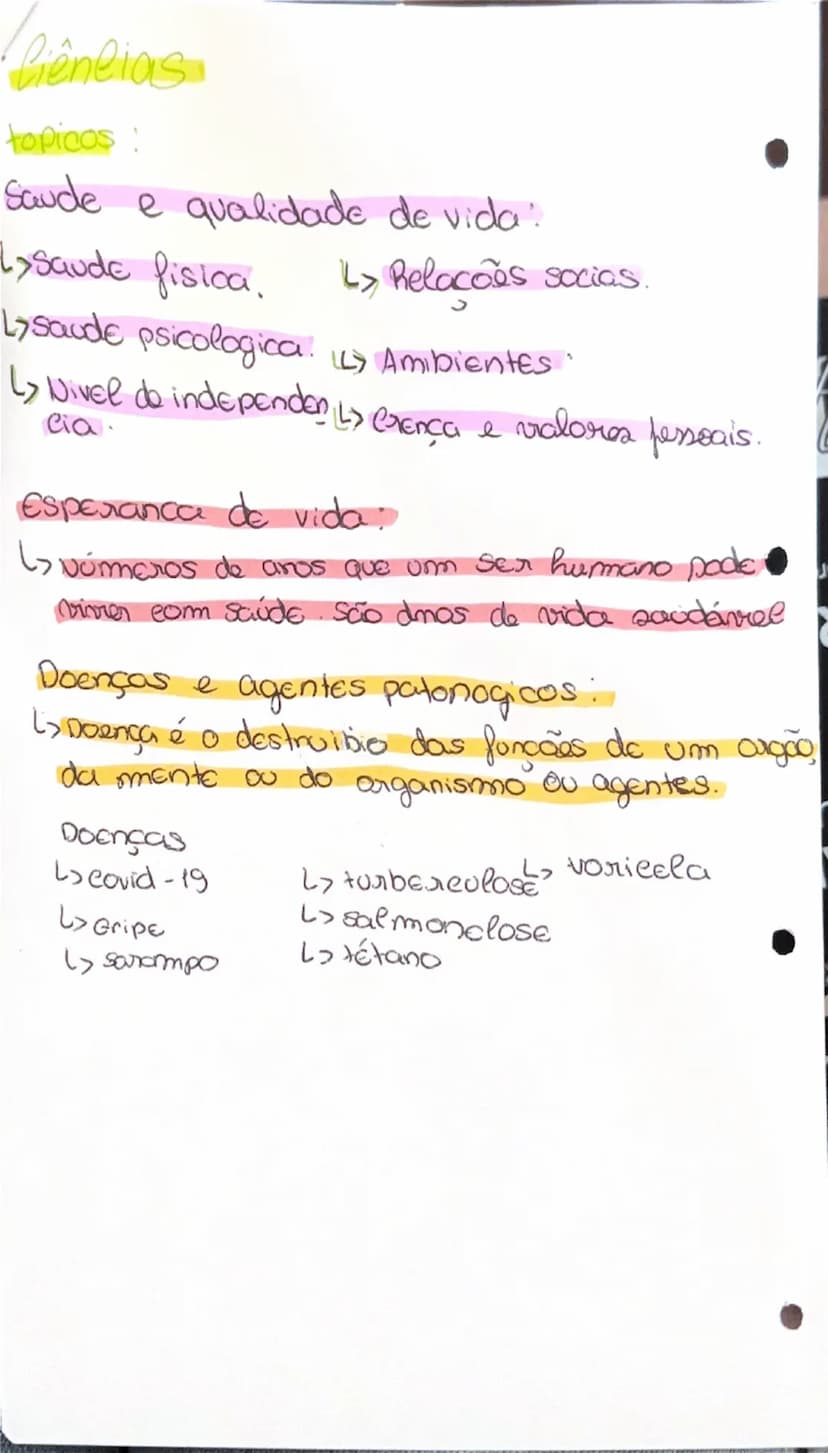 Ciências
topicos :
Saude e qualidade de vida:
↳ Saude fisica. ↳ Relações socias.
↳ Saude psicologica. ↳ Ambientes.
↳ Nivel de independen ↳ Crença e valores pessoais.
cia.
Esperanca de vida:
↳ números de anos que um ser humano pode
viver com saúde. São dmos de vida saudável
Doenças e agentes patonogicos:
↳ Doença é o destruibio das funções de um orgão,
da mente ou do organismo ou agentes.
Doenças
↳ covid-19 ↳ turberculose ↳ voricela
↳ Gripe ↳ salmonelose
↳ sarampo ↳ tétano